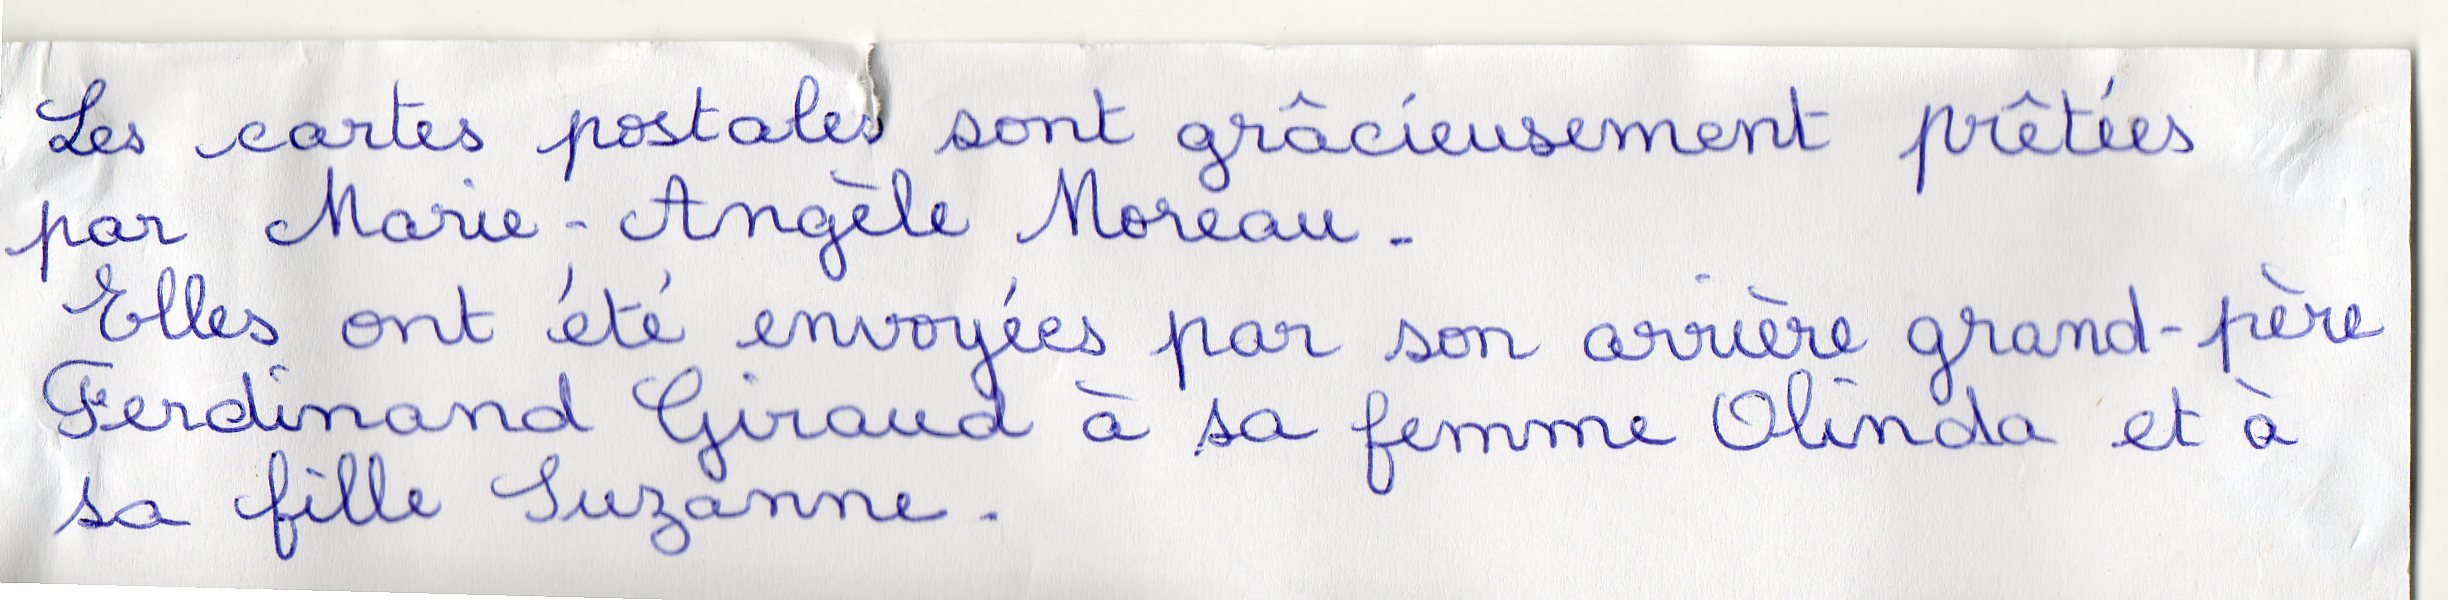 Les cartes postales sont grâcieusement prêtées
par Marie-Angèle Moreau.
Elles ont été envoyées par son arrière grand-père
Ferdinand Giraud à sa femme Olinda et à
sa fille Suzanne.